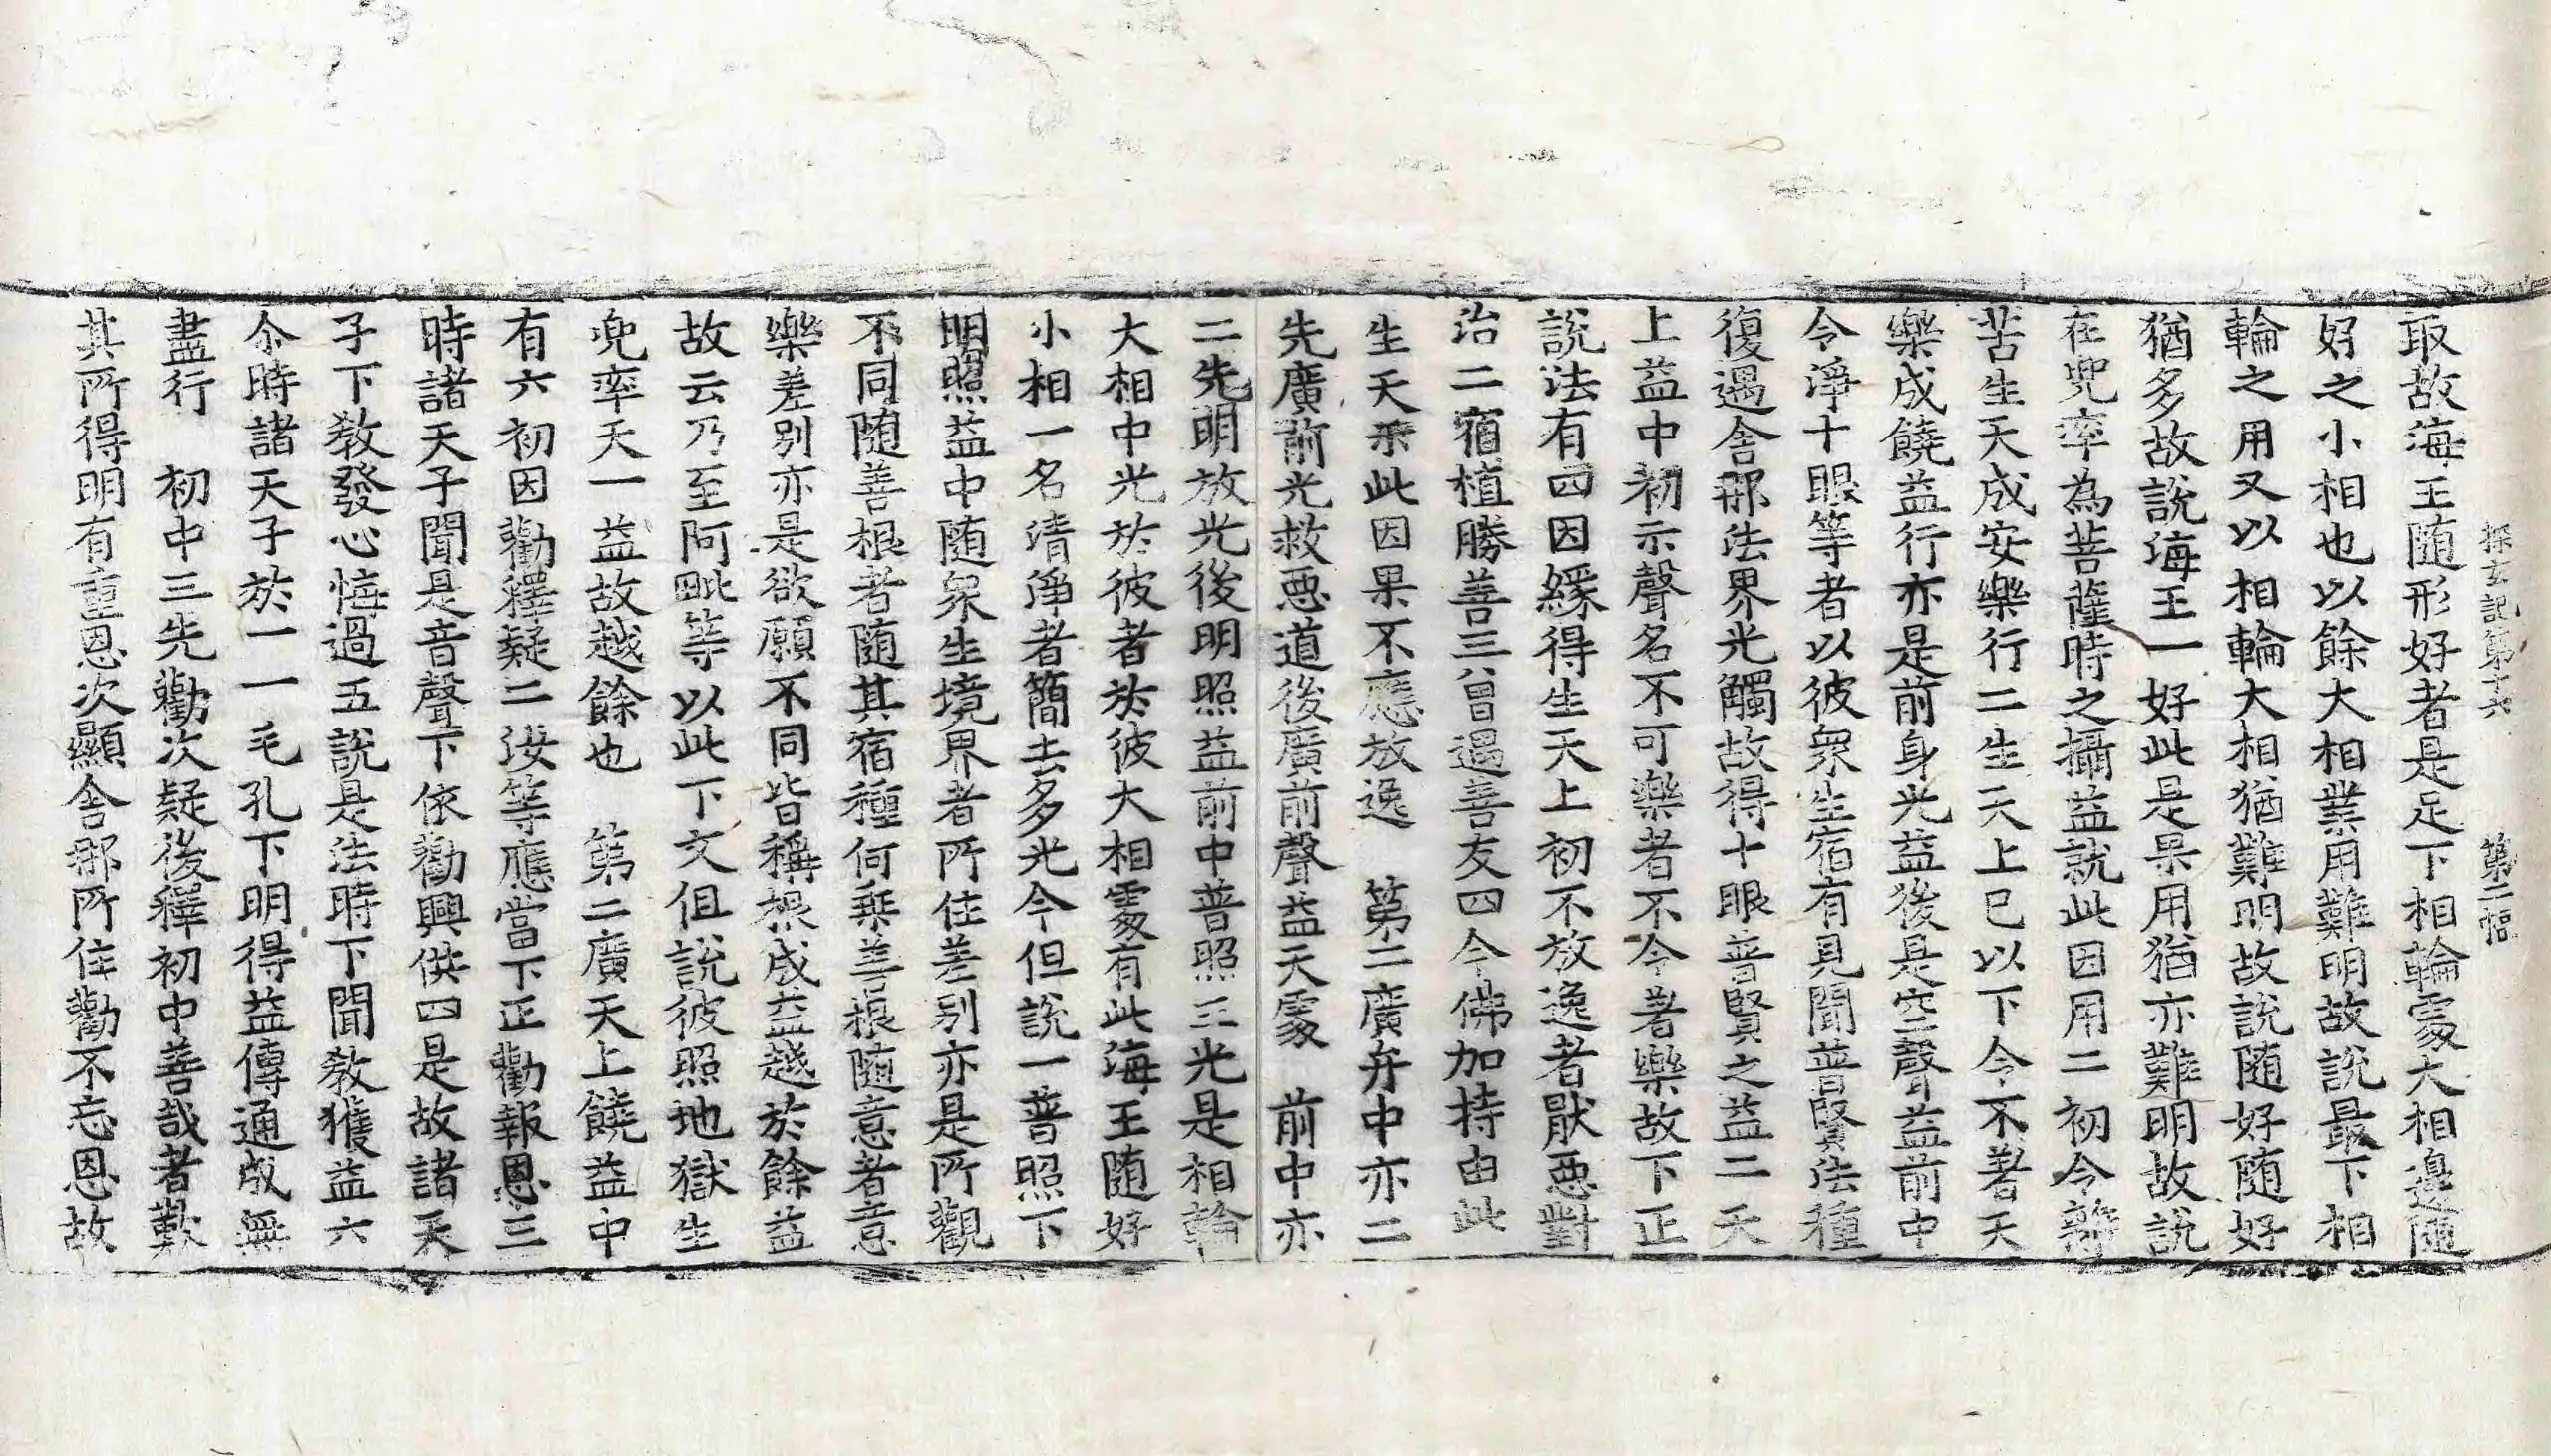 探玄記第十六 第二幅
取故海王随形好者是足下相輪䖏大相邊随
好之小相也以餘大相業用難明故說最下相
輪之用又以相輪大相猶難明故說随好随好
猶多故說海王一好此是果用猶亦難明故說
在兜率為菩薩時之攝益就此因用二初令離
苦生天成安樂行二生天上已以下令不著天
樂成饒益行亦是前身光益後是空聲益前中
令淨十眼等者以彼衆生宿有見聞普賢法種
復遇舍那法界光觸故得十眼普賢之益二天
上益中初示聲名不可樂者不令著樂故下正
說法有四因緣得生天上初不放逸者猒惡對
治二宿植勝善三曾遇善友四今佛加持由此
生天示此因果不應放逸 第二廣弁中亦二
先廣前光救惡道後廣前聲益天䖏 前中亦
二先明放光後明照益前中普照三光是相輪
大相中光扵彼者扵彼大相䖏有此海王随好
小相一名清淨者簡去多光今但說一普照下
明照益中随衆生境界者所住差别亦是所觀
不同随善根者随其宿種何乗善根随意者意
樂差别亦是欲願不同皆稱根成益越於餘益
故云乃至阿毗等以此下文但說彼照地獄生
兜率天一益故越餘也 第二廣天上饒益中
有六初因勸釋疑二汝等應當下正勸報恩三
時諸天子聞是音聲下依勸興供四是故諸天
子下教發心悔過五說是法時下聞教獲益六
令時諸天子於一一毛孔下明得益傳通成無
盡行 初中三先勸次疑後釋初中善哉者歎
其所得明有重恩次顯舍那所住勸不忘恩故